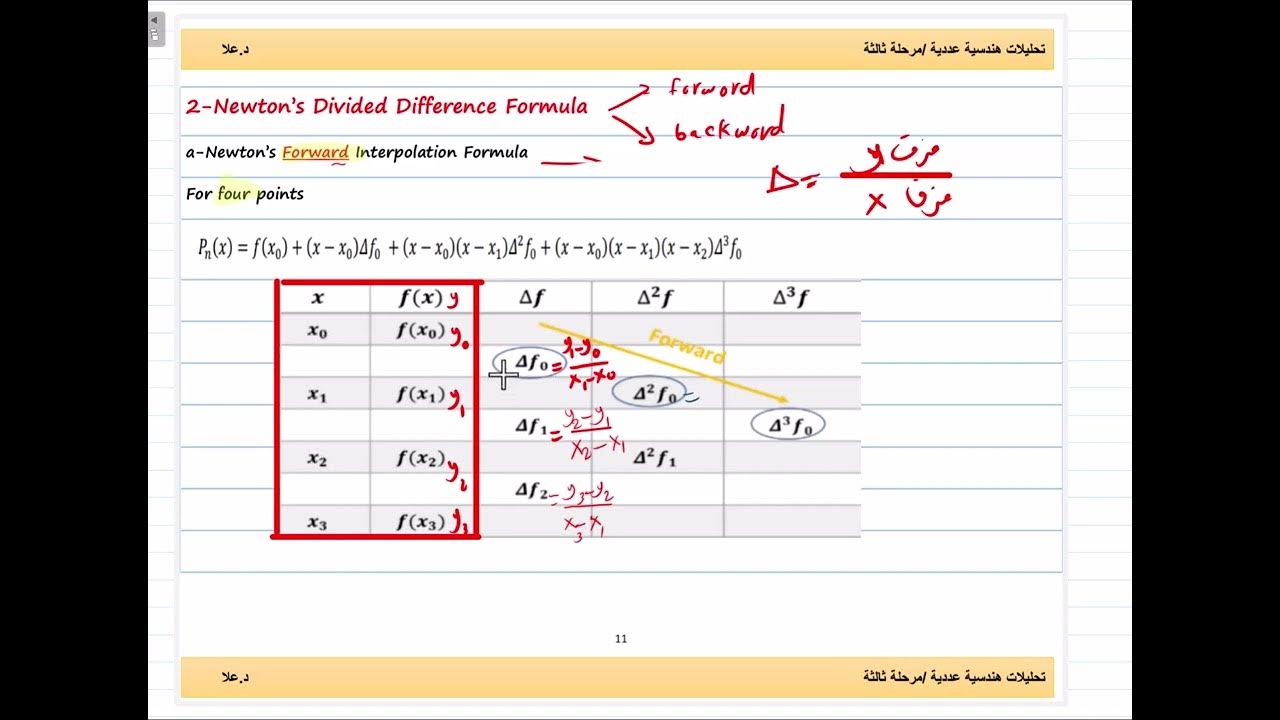 تحليلات هندسية عددية /مرحلة ثالثة د.علا
2-Newton's Divided Difference Formula
forword
backword
a-Newton's Forward Interpolation Formula
For four points
Δ= فرق y / فرق x
Pₙ(x) = f(x₀) + (x − x₀)Δf₀ + (x − x₀)(x − x₁)Δ²f₀ + (x − x₀)(x − x₁)(x − x₂)Δ³f₀
x f(x) y Δf Δ²f Δ³f
x₀ f(x₀) y₀
Forward
Δf₀ = y₁-y₀ / x₁-x₀
x₁ f(x₁) y₁ Δ²f₀ =
Δf₁ = y₂-y₁ / x₂-x₁ Δ³f₀
x₂ f(x₂) y₂ Δ²f₁
Δf₂ = y₃-y₂ / x₃-x₁
x₃ f(x₃) y₃
11
تحليلات هندسية عددية /مرحلة ثالثة د.علا